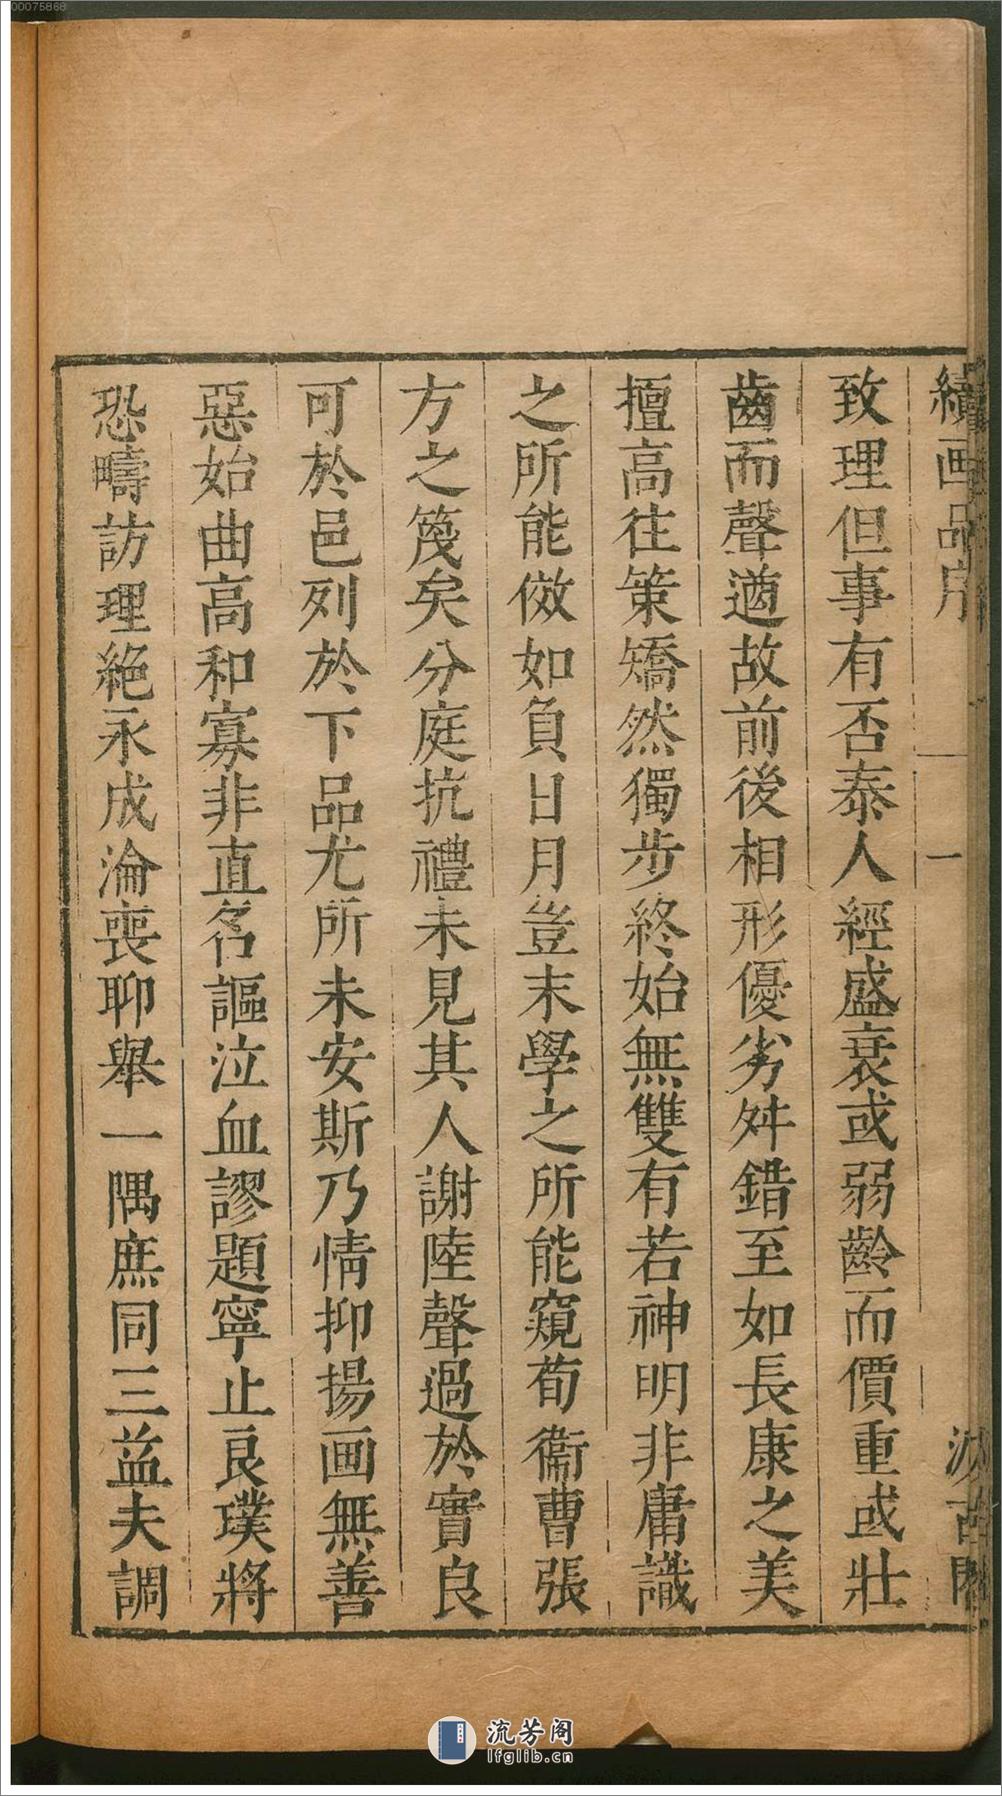 00075868
續画品序
一
汲古閣
致理但事有否泰人經盛衰或弱齡而價重或壯
齒而聲遒故前後相形優劣舛錯至如長康之美
擅高往策矯然獨步終始無雙有若神明非庸識
之所能傚如負日月豈末學之所能窺荀衞曹張
方之篾矣分庭抗禮未見其人謝陸聲過於實良
可於邑列於下品尤所未安斯乃情抑揚画無善
惡始曲高和寡非直名謳泣血謬題寧止良璞將
恐疇訪理絕永成淪喪聊舉一隅庶同三益夫調
流芳阁
lfglib.cn